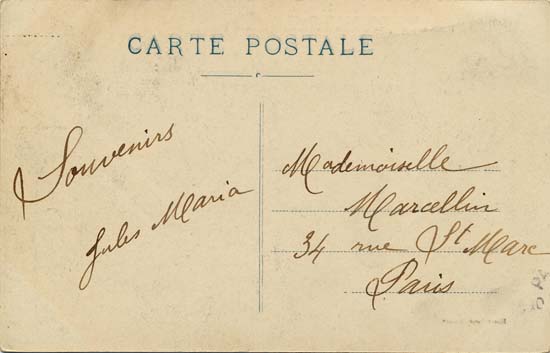 CARTE POSTALE
Souvenirs
Jules Maria
Mademoiselle
Marcellin
34 rue St Marc
Paris